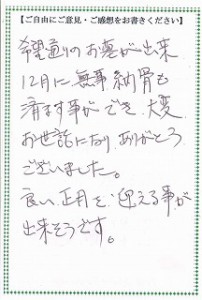 【ご自由にご意見・ご感想をお書きください】
希望通りのお墓が出来
12月に無事納骨も
済ます事ができ、大変
お世話になり、ありがとう
ございました。
良い正月を、迎える事が
出来そうです。